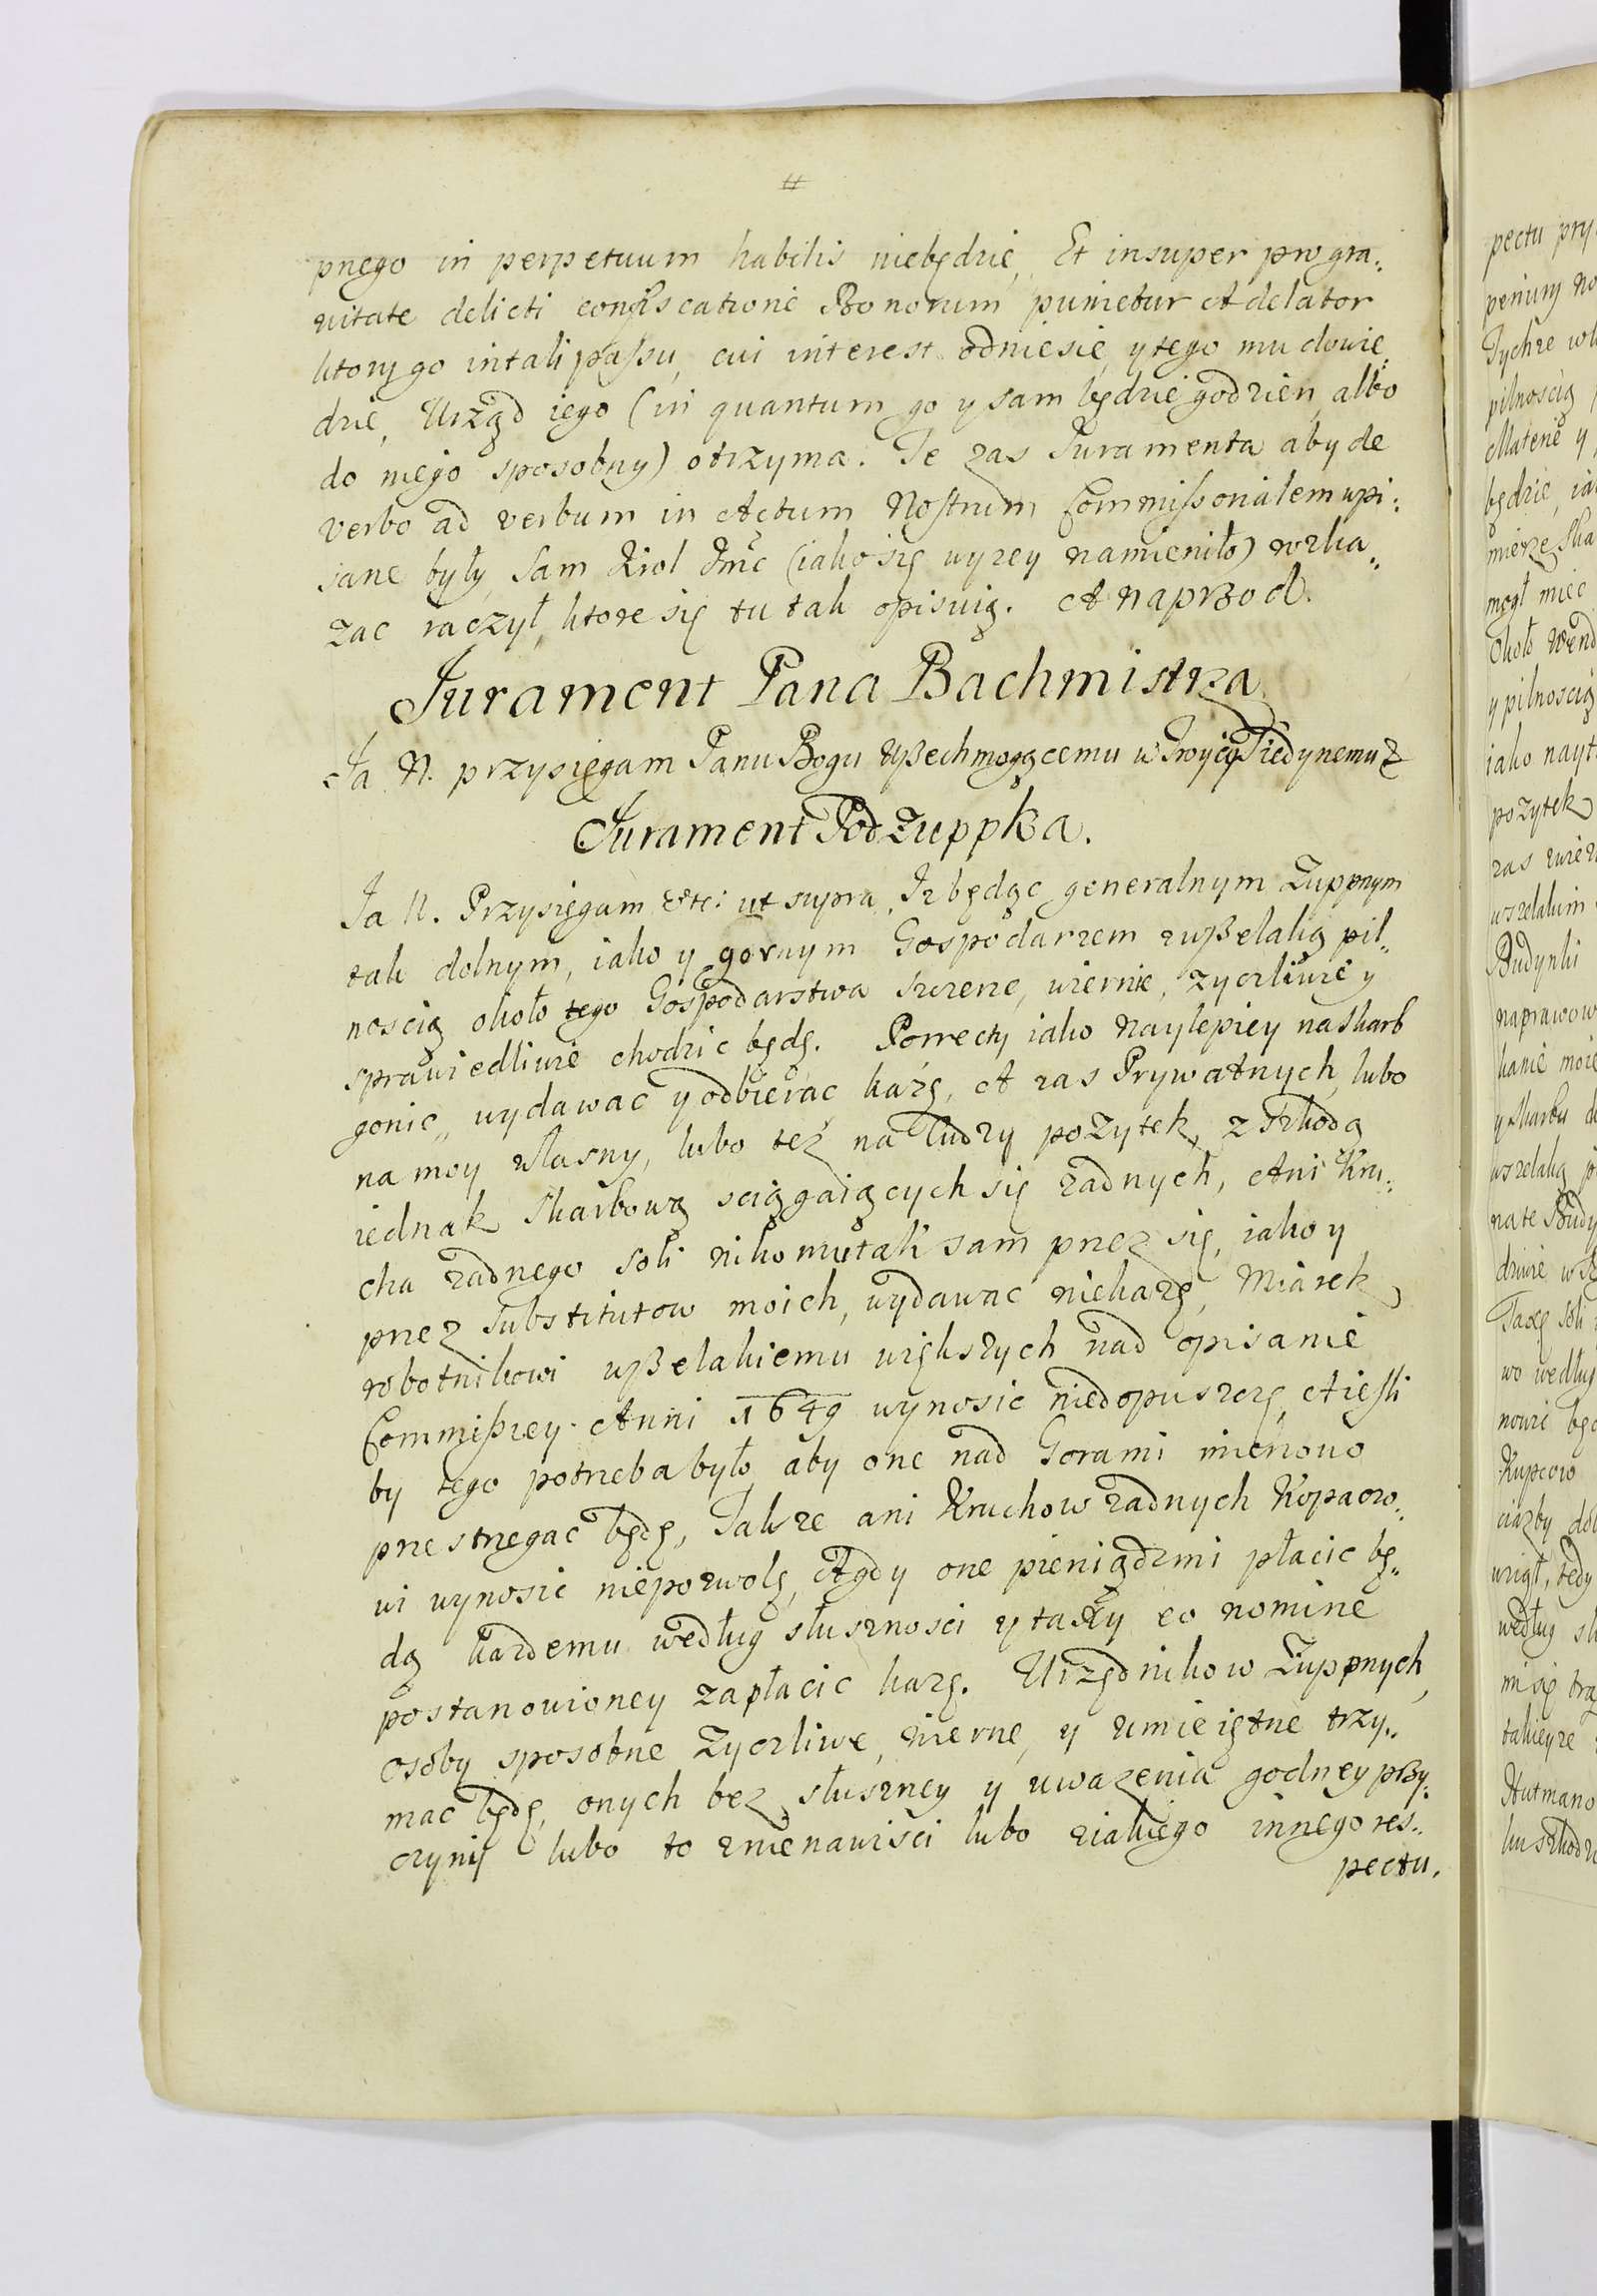 pnego in perpetuum habilis niebędzie, Et insuper pro gra„
vitate delicti confiscatione Bonorum punietur A delator
ktory go in tali passu, cui interest odniesie, y tego mu dowie„
dzie, Urząd iego (in quantum go y sam będzie godzien, albo
do niego sposobny) otrzyma. Te zas Juramenta aby de
verbo ad verbum in Actum Nostrum Commissorialem wpi„
sane były, sam Krol Jmć (iako się wyzey namieniło) wzka„
zac raczył, ktore się tu tak opisuią. A naprzod.
Jurament Pana Bachmistrza
Ja N. przysięgam Panu Bogu Wszechmogącemu w Troycy Jedynemu &
Jurament Podżuppka.
Ja N. Przysięgam &tc: ut supra, Iz będąc generalnym Zuppnym
tak dolnym, iako y gornym Gospodarzem zwszelaką pil„
noscią około tego Gospodarstwa szczerze, wiernie, zyczliwie y
sprawiedliwie chodzic będę. Porrecty iako naylepiey na skarb
gonic, wydawac y odbierać każę, A zas Prywatnych, lubo
na moy własny, lubo też na ludzy pozytek, z szkodą
iednak skarbową sciągaiących się zadnych, Ani Kru„
cha zadnego soli nikomu tak sam przez się, iako y
przez Substitutow moich, wydawac niekażę, Miarek
robotnikowi wszelakiemu większych nad opisanie
Commissiey Anni 1649 wynosic niedopuszczę, A iesli
by tego potrzeba było, aby one nad Gorami mienowo
przestrzegac będę, Takze ani Kruchow zadnych Kopaczo„
wi wynosic niepozwolę, A gdy one pieniądzmi płacic bę„
dą kazdemu według słusznosci y taxy eo nomine
postanowioney zapłacic każę. Urzędnikow Zuppnych,
osoby sposobne zyczliwe, wierne, y umieiętne trzy„
mac będę, onych bez słuszney y uwazenia godney przy„
czyny lubo to znienawisci lubo ziakiego innego res„
pectu.